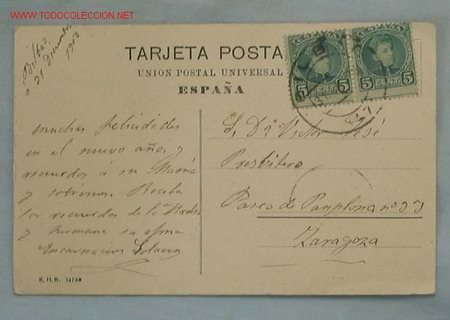 WWW.TODOCOLECCION.NET
Bilbao
31 Diciembre
TARJETA POSTA
UNION POSTAL UNIVERSAL
ESPAÑA
5 CENT. 5
5 CENT. 5
muchas felicidades
en el nuevo año, y
recuerdos a su Mamá
y sobrinos. Reciba
los recuerdos de la Madre
y hermana su affma
Encarnacion
S. D. Victor José
Presbitero
Paseo de Pamplona nº 23
Zaragoza